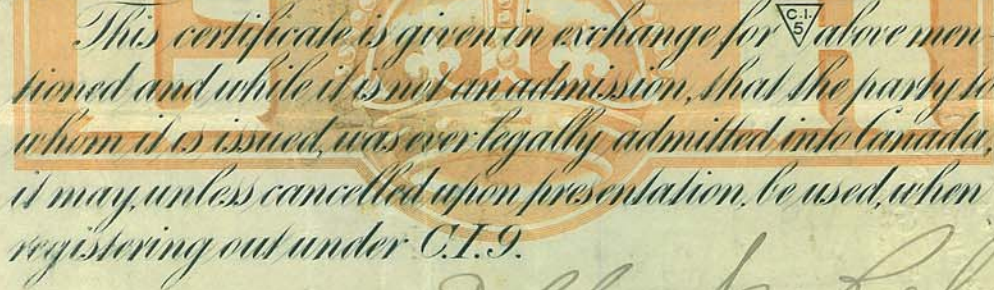 This certificate is given in exchange for C.I. 5 above men-
tioned and while it is not an admission, that the party to
whom it is issued, was ever legally admitted into Canada,
it may, unless cancelled upon presentation, be used, when
registering out under C.I.9.